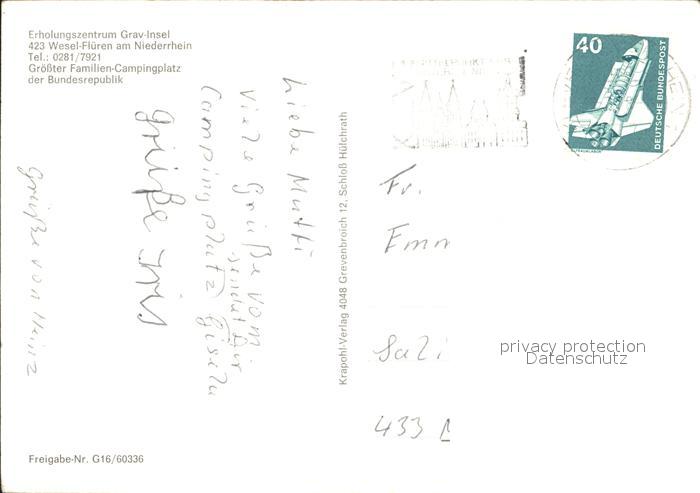 Erholungszentrum Grav-Insel
423 Wesel-Flüren am Niederrhein
Tel.: 0281/7921
Größter Familien-Campingplatz
der Bundesrepublik
Liebe Mutti
Viele Grüße vom
sendet Dir
Campingplatz Gisela
Grüße Iris
Grüße von Heinz
Krapohl-Verlag 4048 Grevenbroich 12, Schloß Hülchrath
40
DEUTSCHE BUNDESPOST
Fr.
Emm
Sali
433
privacy protection
Datenschutz
Freigabe-Nr. G16/60336